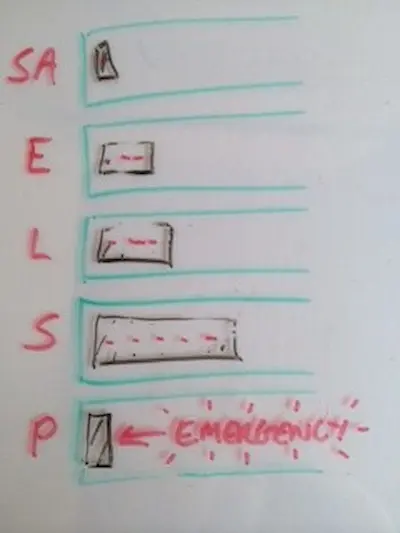 SA
E
L
S
P EMERGENCY